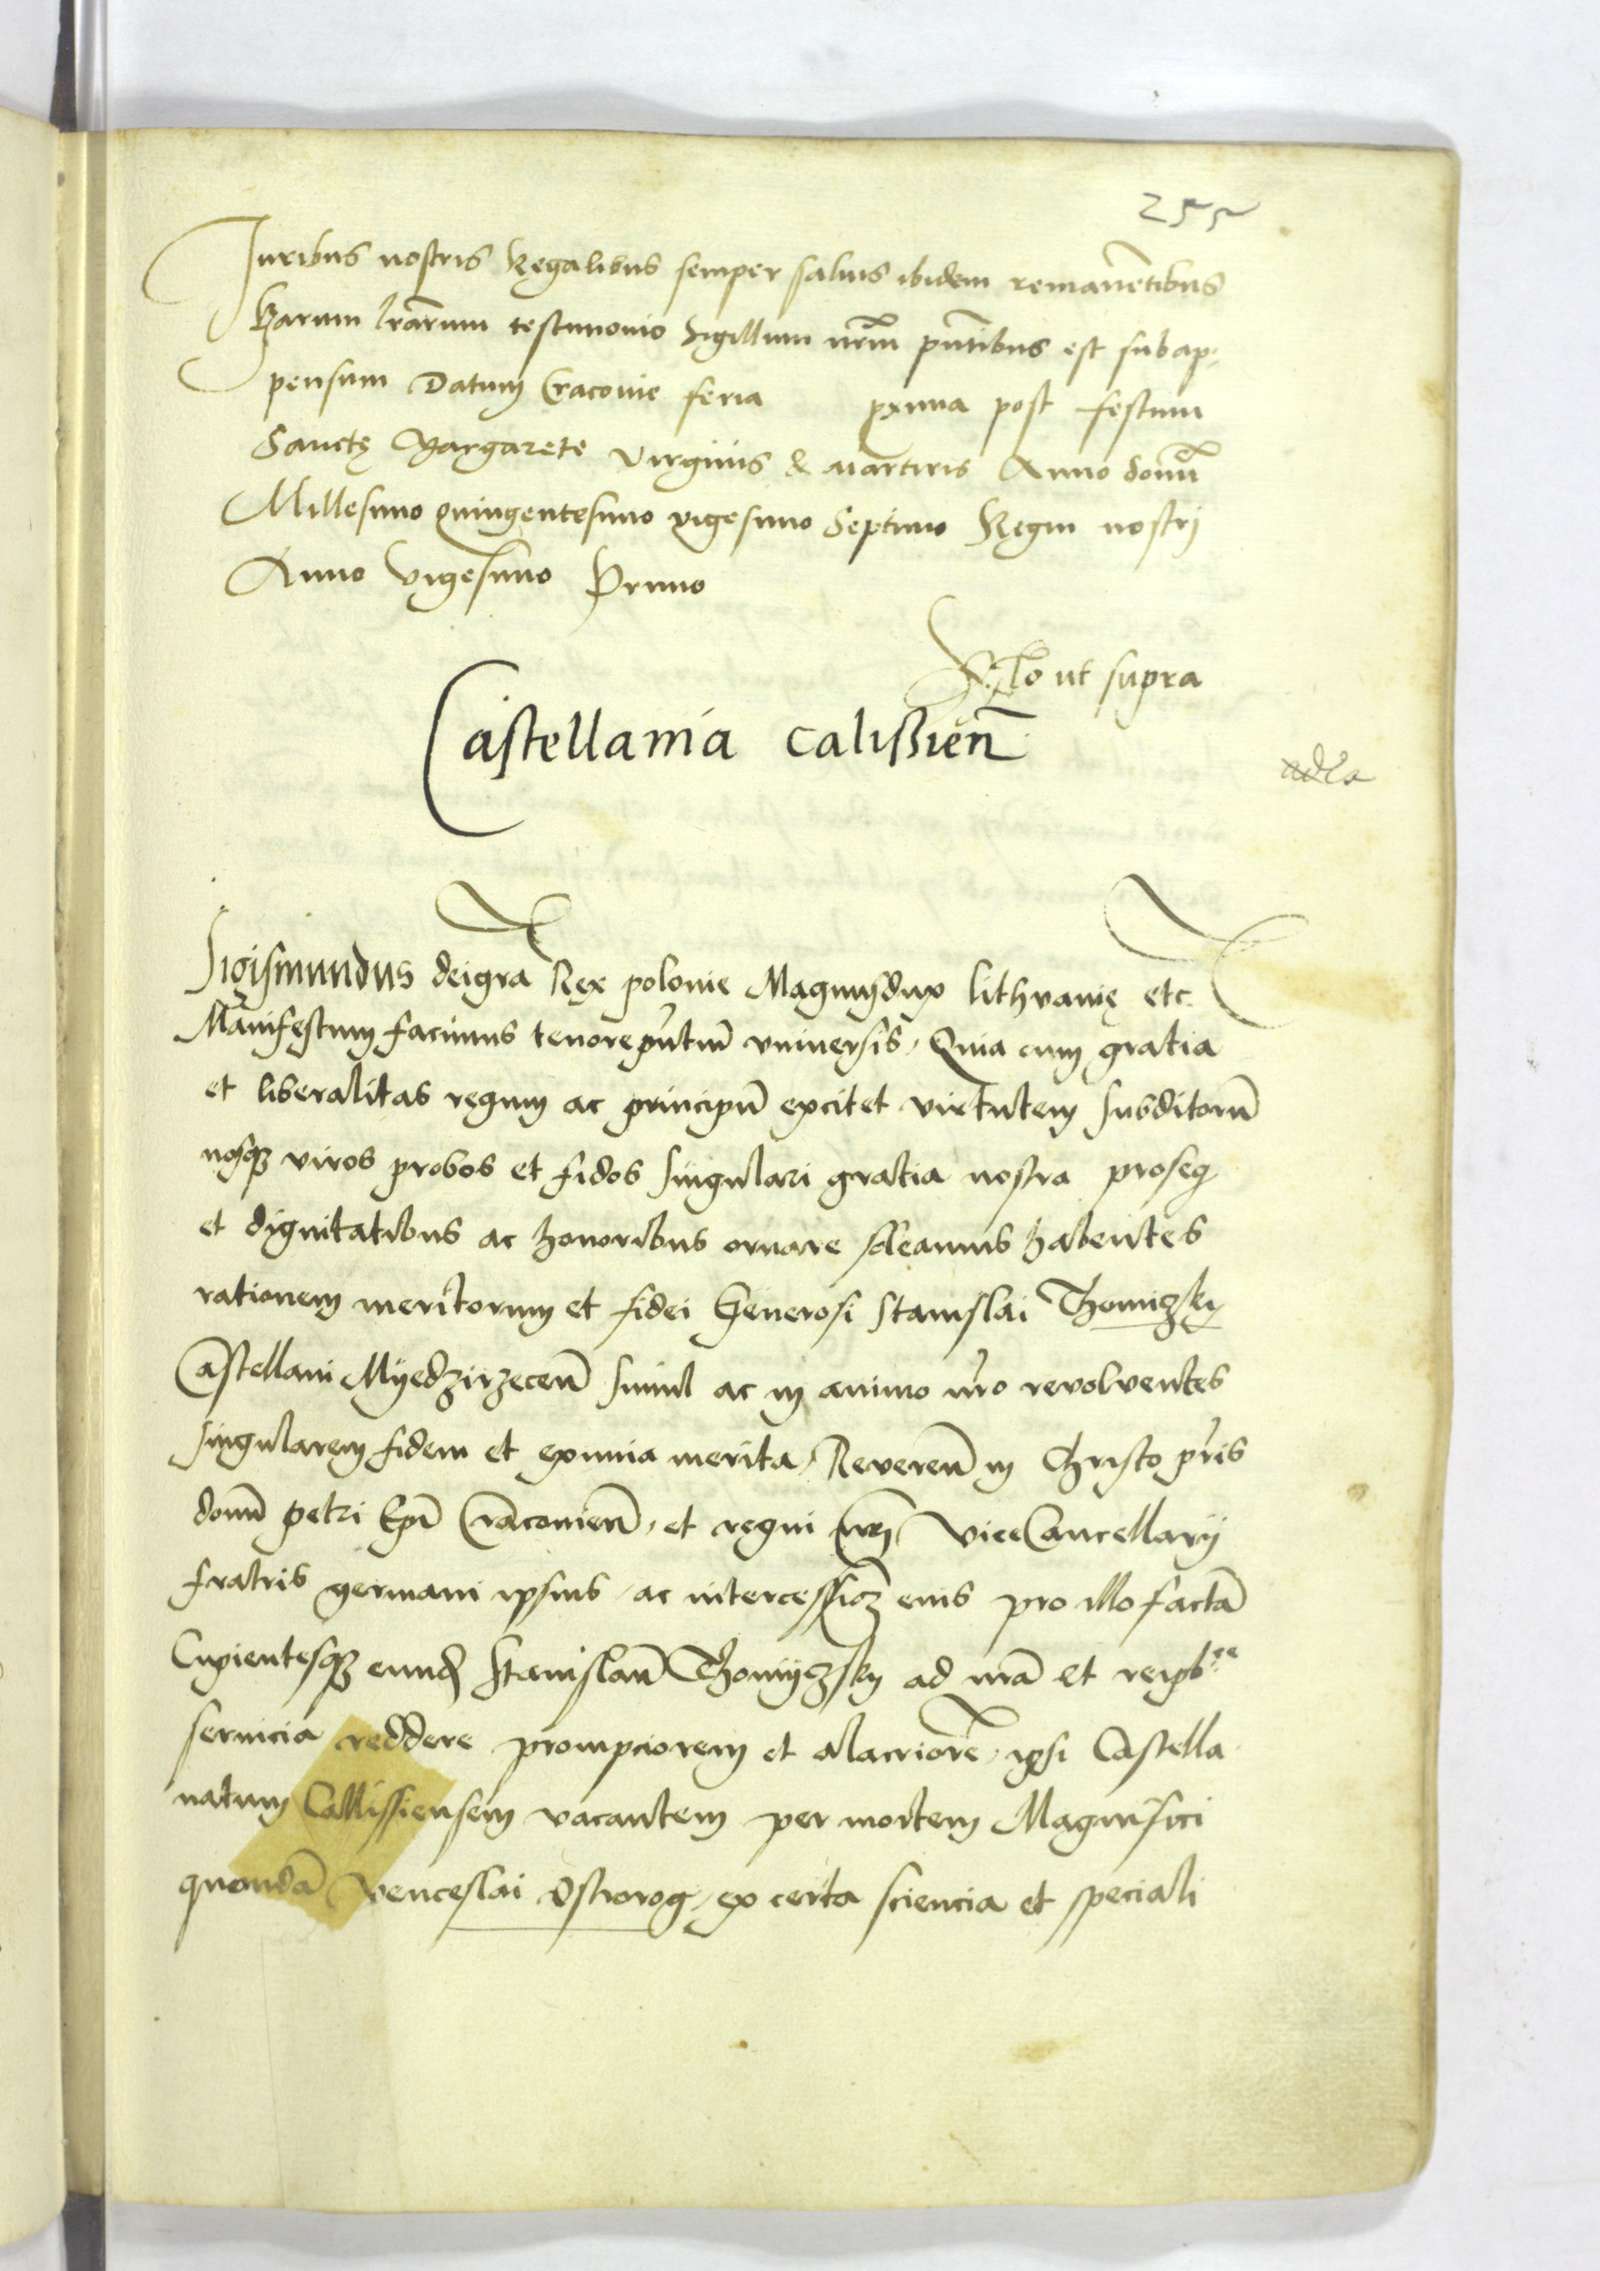 255
Juribus nostris Regalibus semper saluis ibidem remanẽtibus
harum lrãrum testimonio Sigillum nr̃m pñtibus est subap
pensum Datum Cracovie feria pxima post festum
Sanctę Margarete virginis & martiris Anno domĩ
Millesimo quingentesimo vigesimo Septimo Regni nostri
Anno vigesimo Primo
ut supra
Castellania calissień
Sigismundus dei gra Rex polonie Magnus dux lithvanię etc.
Manifestum facimus tenore pñtiũ vniuersis, Quia cum gratia
et liberalitas regum ac principũ excitet virtutem subditorũ
nosq₃ viros probos et fidos singulari gratia nostra proseq
et dignitatibus ac honoribus ornare soleamus habentes
rationem meritorum et fidei Generosi Stanislai Thomiczky
Castellani Myedzirzeceñ simul ac in animo nr̃o revolventes
singularem fidem et eximia merita, Reverenñ in Christo pr̃is
domñ petri Epĩ Cracovieñ, et regni nr̃i ViceCancellarij
fratris germani ipsius, ac intercessioẽ eius pro illo factã
Cupientesq₃ eund Stanislaũ Thomyczky ad nrã et reipb^ce
seruicia reddere prompciorem et alacriorẽ, ipsi Castella
natum Callissiensem vacantem per mortem Magnifici
quondã Venceslai Ostrorog, ex certa sciencia et speciali